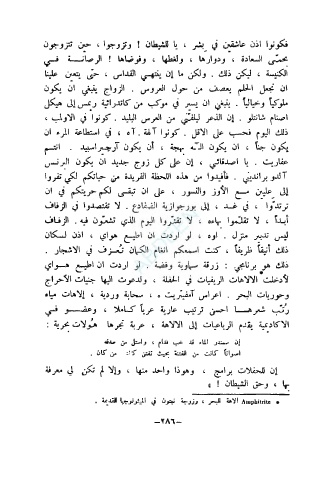 فكونوا اذن عاشقين في بشر ، يا للشيطان ! وتزوجوا ، حين تتزوجون
بحمّى السعادة ، ودوارها ، ولغطها ، وفوضاها ! الرصانة في
الكنيسة ، ليكن ذلك . ولكن ما إن ينتهي القداس ، حتى يتعين علينا
ان نجعل الحلم يعصف من حول العروس . الزواج ينبغي ان يكون
ملوكياً وخيالياً . ينبغي ان يسير في موكب من كاتدرائية ريمس إلى هيكل
شانتلو . إن الذعر ليلفني من العرس البليد . كونوا في الاولمب ،
ذلك اليوم فحسب على الاقل . كونوا آلهة . آه ، في استطاعة المرء ان
يكون جناً ، ان يكون آله بهجة ، أن يكون آرجيراسبيد . انتم
عفاريت . يا اصدقائي ، إن على كل زوج جديد ان يكون البرنس
آلدوبرانديني . فأفيدوا من هذه اللحظة الفريدة من حياتكم لكي تفروا
إلى عليين مع الأوز والنسور ، على ان تبقى لكم حريتكم في ان
ترتدوا ، في غد ، إلى بورجوازية الضفادع . لا تقتصدوا في الزفاف
أبداً ، لا تقلموا بهاءه . لا تقتّروا اليوم الذي تشعّون فيه . الزفاف
ليس تدبير منزل . اوه ، لو اردت ان اطيع هواي ، اذن لكان
ذلك أنيقاً ظريفاً ، كنت اسمعكم انغام الكمان تعزف في الاشجار .
ذلك هو برنامجي : زرقة سماوية وفضة . لو اردت ان اطيع هواي
لأدخلت الآلاهات الريفيات في الحفلة ، ولدعوت اليها جنيات الاحراج
وحوريات البحر . اعراس آمفيتريت • ، سحابة وردية ، إلاهات مياه
رتّب شعرهما احسن ترتيب عارية عرياً كاملاً ، وعضو في
الاكاديمية يقدم الرباعيات إلى الالاهة ، عربة تجرها هولات بحرية :
اصواتاً كانت من الفتنة بحيث تفتن كائناً من كان .
إن للحفلات برامج ، وهوذا واحد منها ، وإلا لم تكن لي معرفة
بها ، وحق الشيطان ! »
• Amphitrite الاهة للبحر ، وزوجة نبتون في الميثولوجيا القديمة .
-٢٨٦-